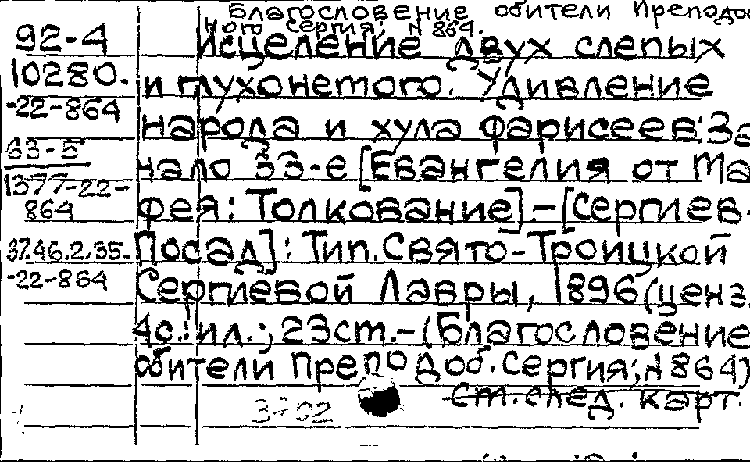 Благословение обители Преподоб
ного Сергия; N 864.
92-4 Исцеление двух слепых
10280. и глухонемого. Удивление
-22-864 народа и хула фарисеев: За
63-5 чало 33-е [Евангелия от Ма
1377-22- фея: Толкование]. – [Сергиев.
864
3746.2.35. Посад]: Тип. Свято-Троицкой
-22-864 Сергиевой Лавры, 1896 (ценз.
4с.: ил.; 23см. – (Благословение
обители Преподоб. Сергия; N 864)
См. след. карт.